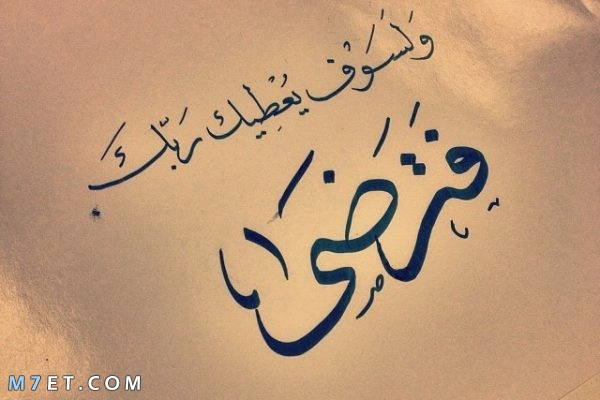 وَلَسَوْفَ يُعْطِيكَ رَبّكَ
فَتَرَضَى
M7ET.COM